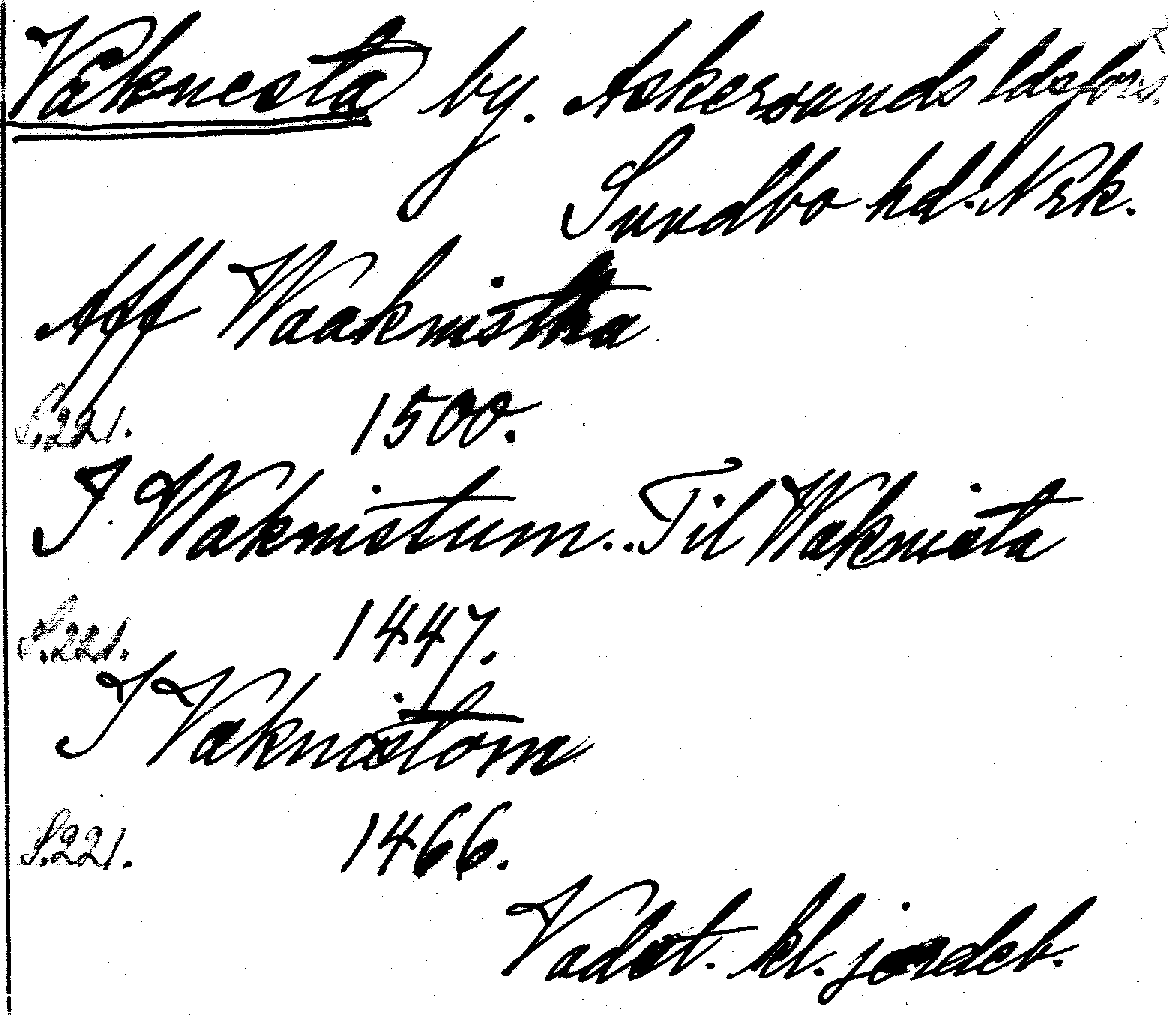 Våknesta by. Askersunds ldsförs.
Sundbo hd. Nrk.
Aff Waaknistha
S.221. 1500.
I Waknistum.. Til Waknista
S.221. 1447.
I Vaknistom
S.221. 1466.
Vadst. kl. jordeb.